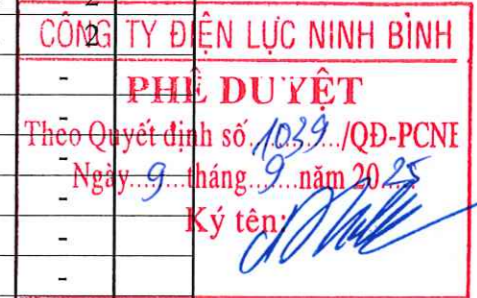 2
CÔNG TY ĐIỆN LỰC NINH BÌNH
2
-
PHÊ DUYỆT
-
Theo Quyết định số 1039 /QĐ-PCNB
-
Ngày 9 tháng 9 năm 2025
-
Ký tên:
-
-